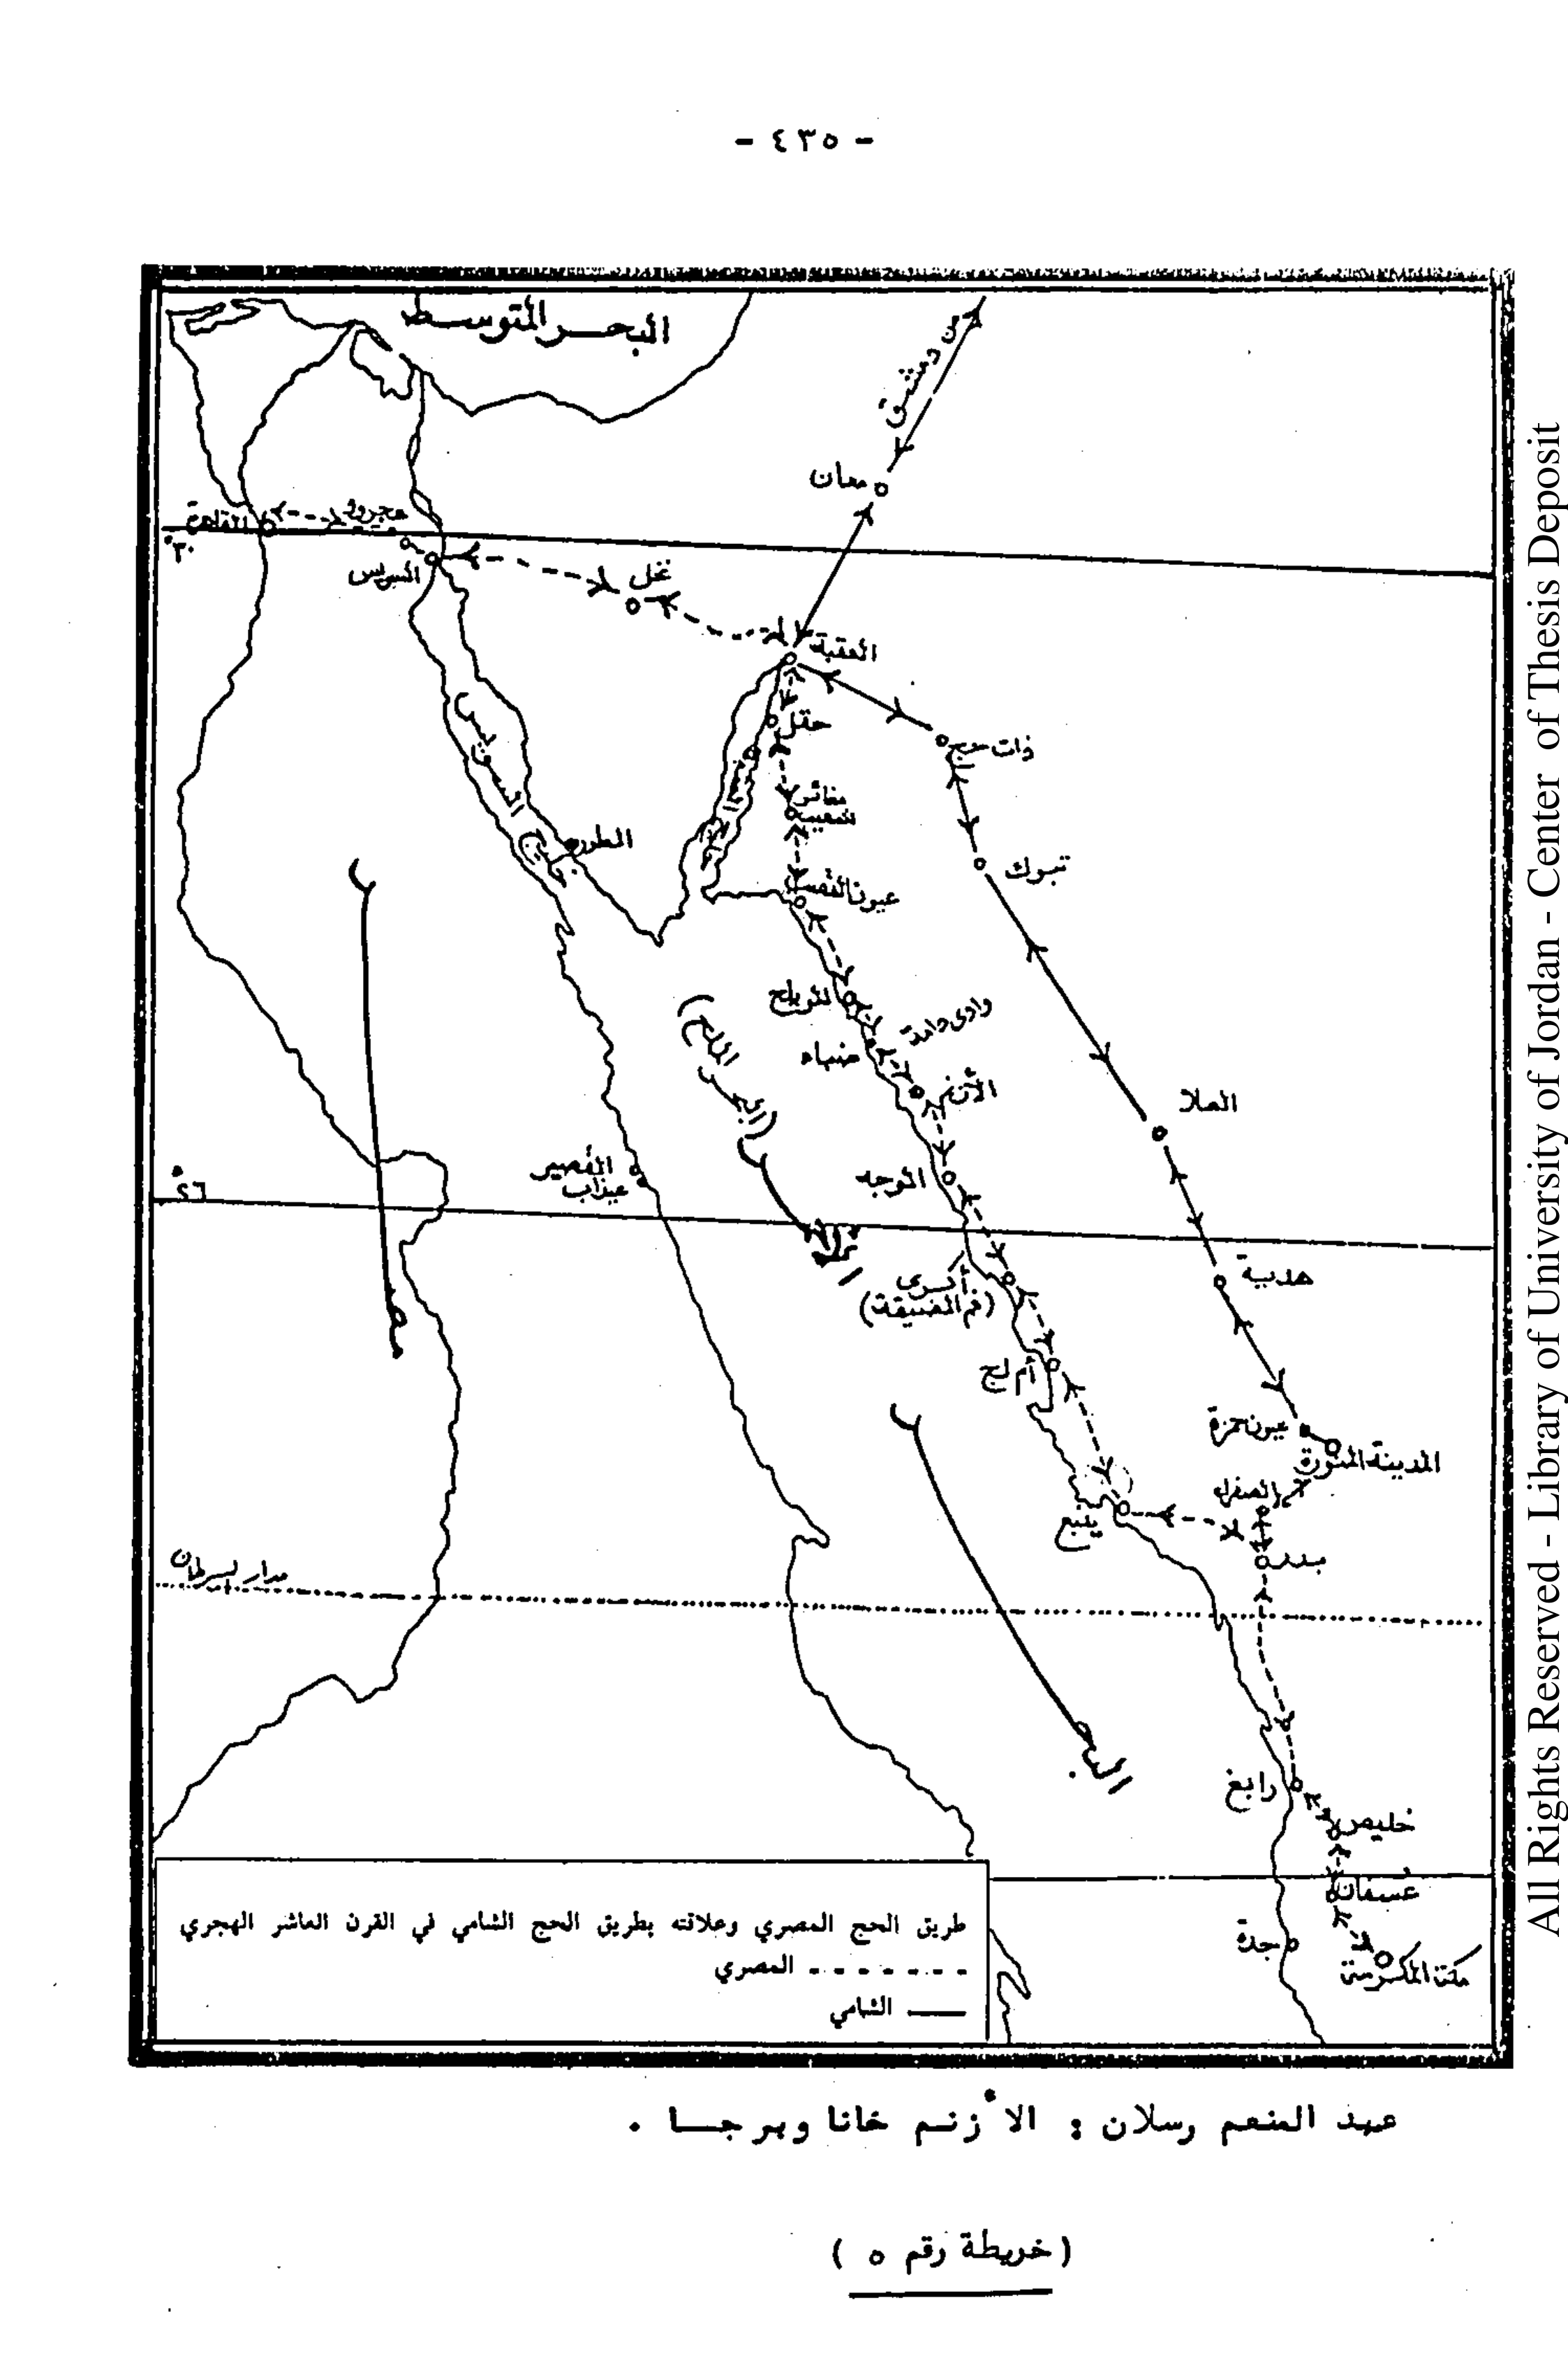 - ٤٣٥ -
البحر المتوسط
دمشق
معان
القاهرة
عجرود
٣٠°
السويس
نخل
العقبة
حقل
ذات حج
مغائر
شعيب
الطور
تبوك
عيون القصب
المويلح
وادى دامة
ضباء
(البحر الملح)
الأزنم
العلا
القصير
عيذاب
الوجه
٢٦°
أكرى
(فم الضيقة)
هدية
مصر
أم لج
عيون حمزة
المدينة المنورة
الصفراء
ينبع
بدر
مدار السرطان
البحر
رابغ
خليص
عسفان
جدة
مكة المكرمة
طريق الحج المصري وعلاقته بطريق الحج الشامي في القرن العاشر الهجري
المصري
الشامي
عبد المنعم رسلان : الأزنم خانا وبرجا .
( خريطة رقم ٥ )
All Rights Reserved - Library of University of Jordan - Center of Thesis Deposit